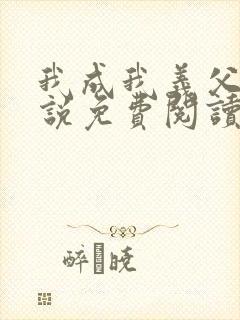 我成我義父
說免費閱讀
醉 曉